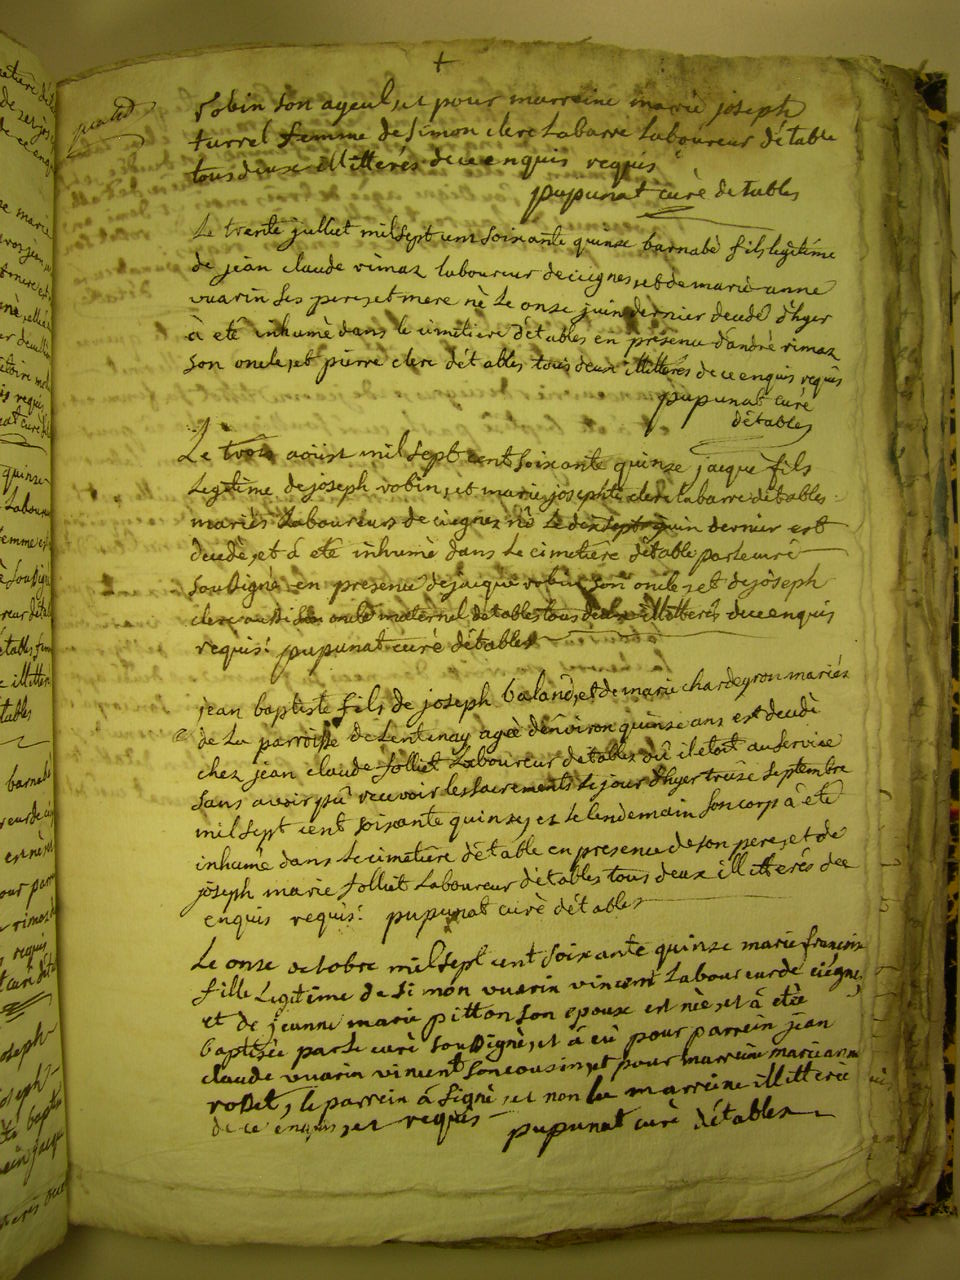 +
robin son ayeul, et pour marreine marie joseph
turrel femme de simon clerc labarre laboureur détable
tous deux illitterés de ce enquis requis
pupunat curè détables
Le trente julliet mil sept cent soixante quinze barnabé fils legitime
de jean claude rimaz laboureur de ciegnes, et de marie anne
vuarin ses pere, et mere nè le onze juin dernier decedé d'hyer
à etè inhumè dans le cimitiere détables en présence d'andrè rimaz
son oncle, et pierre clerc détables tous deux illitterés de ce enquis requis
pupunat curé
détables
Le trois aoust mil sept cent soixante quinze jacque fils
legitime de joseph robin, et marie josephte clerc labarre détables
mariés laboureurs de ciegnes né le dix sept juin dernier est
decedè, et à etè inhumè dans le cimetière détable par le curè
soussignè en presence de jacque robin son oncle, et de joseph
clerc aussi son oncle maternel détables tous deux illitterés de ce enquis
requis: pupunat curè détables
jean baptiste fils de joseph baland, et de marie chardeyron mariés
de la parroisse de Lentenay agé d'environ quinze ans est decedè
chez jean claude Jolliet laboureur détables où il etoit au service
sans avoir pû recevoir les sacrements le jour d'hyer treize septembre
mil sept cent soixante quinze, et le lendemain son corp à etè
inhumè dans le cimetière détable en presence de son pere, et de
joseph marie Jolliet laboureur détables tous deux illitterés de ce
enquis requis: pupunat curè détables
Le onze octobre mil sept cent soixante quinze marie francoise
fille legitime de simon vuarin vincent laboureur de ciegne,
et de jeanne marie pitton son epouse est nèe, et à etèe
baptisèe par le curè soussignè, et à eù pour parrein jean
claude vuarin vincent son cousin, et pour marreine marie anne
rodet, le parrein à signè, et non la marreine illitterée
de ce enquis, et requis
pupunat curè détables